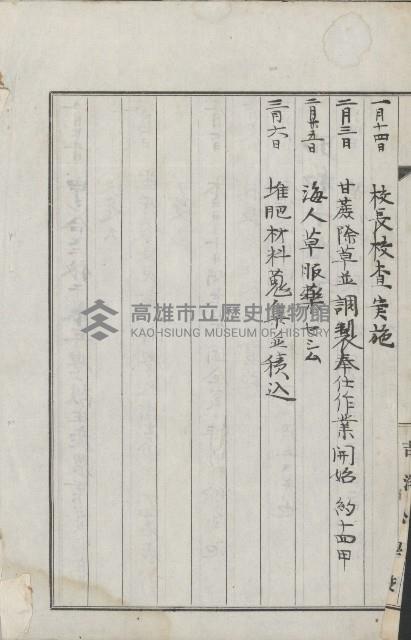 一月十四日　校長検査実施
二月三日　甘蔗除草並調製奉仕作業開始　約十四甲
二月廿五日　海人草服薬セシム
三月六日　堆肥材料蒐集並積込
高雄市立歷史博物館
KAOHSIUNG MUSEUM OF HISTORY